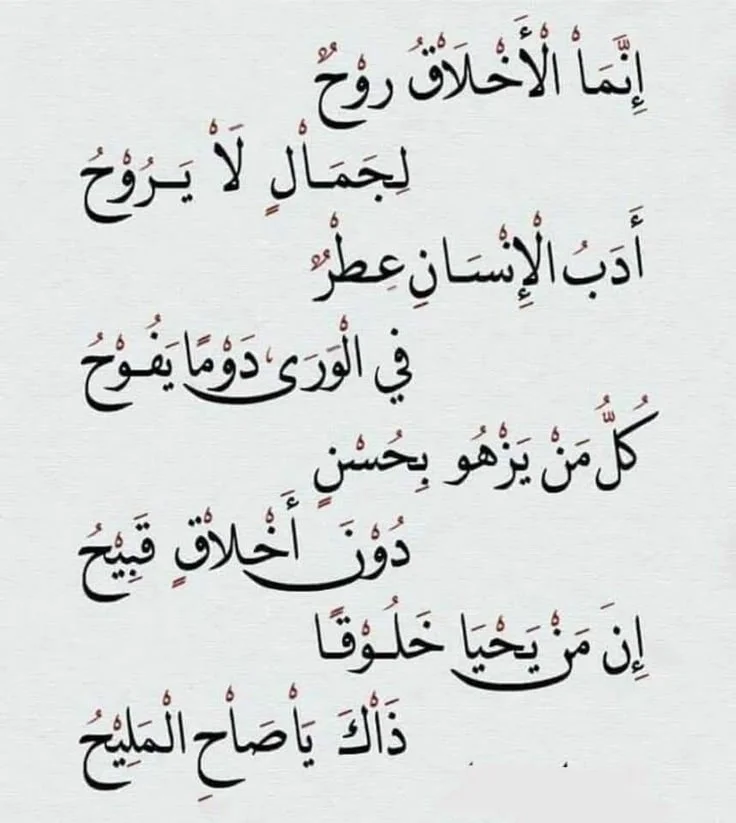 إِنَّمَاْ الْأَخْلَاْقُ رُوْحٌ
لِجَمَاْلٍ لَاْ يَرُوْحُ
أَدَبُ الْإِنْسَانِ عِطْرٌ
فِي الْوَرَى دَوْمًا يَفُوْحُ
كُلُّ مَنْ يَزْهُو بِحُسْنٍ
دُوْنَ أَخْلَاْقٍ قَبِيْحُ
إِنَ مَنْ يَحْيَا خَلُوْقًا
ذَاْكَ يَاْ صَاْحِ الْمَلِيْحُ